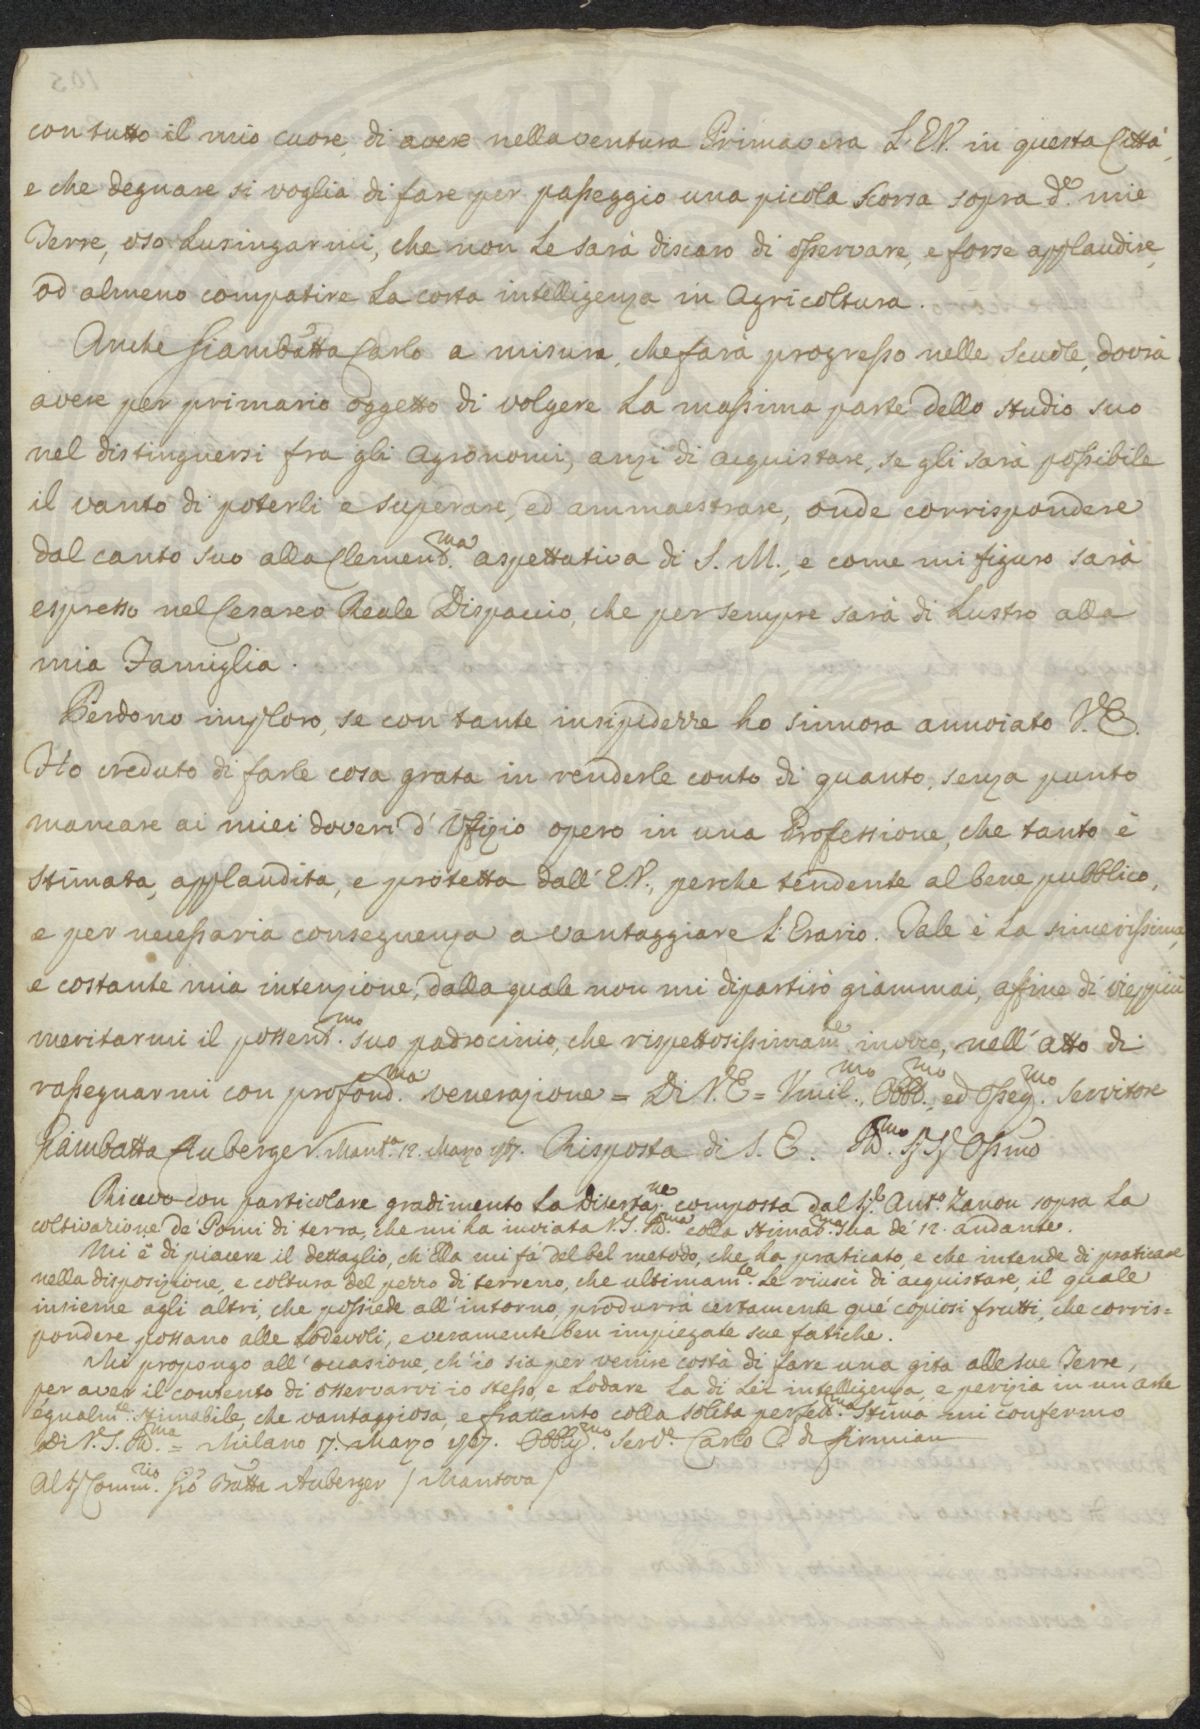 con tutto il mio cuore, di avere nella ventura Primavera L'E.V. in questa Città,
e che degnare si voglia di fare per passeggio una picola scorsa sopra d.e mie
Terre, oso Lusingarmi, che non Le sarà discaro di osservare, e forse applaudire,
od almeno compatire La corta intelligenza in Agricoltura.
Anche Giambatta Carlo a misura, che farà progresso nelle scuole, dovrà
avere per primario oggetto di volgere La massima parte dello studio suo
nel distinguersi fra gli Agronomi, anzi di acquistare, se gli sarà possibile
il vanto di poterli e superare, ed ammaestrare, onde corrispondere
dal canto suo alla Clemend.ma aspettativa di S. M., e come mi figuro sarà
espresso nel Cesareo Reale Dispaccio, che per sempre sarà di Lustro alla
mia Famiglia.
Perdono imploro, se con tante insipidezze ho sinnora annoiato V.E.
Ho creduto di farle cosa grata in renderle conto di quanto, senza punto
mancare ai miei doveri d'Uffizio opero in una Professione, che tanto è
stimata, applaudita, e protetta dall'E.V., perche tendente al bene pubblico,
e per necessaria conseguenza a vantaggiare L'Erario. Tale è La sincerissima,
e costante mia intenzione, dalla quale non mi dipartirò giammai, affine di vieppiù
meritarmi il possent.mo suo padrocinio, che rispettosissimam.te invoco, nell'atto di
rassegnarmi con profond.ma venerazione = Di V.E = Umil.mo, Obbl.mo, ed Osseq.mo Servitore
Giambatta Auberger. Mant.a 12. Marzo 1767. Risposta di S. E.
Ricevo con particolare gradimento La Disertaz.ne composta dal Sig.r Ant.o Zanon sopra La
coltivazione de' Pomi di terra, che mi ha inviata V.S. Ill.ma colla stimat.ma Sua de' 12. andante.
Mi è di piacere il dettaglio, ch'Ella mi fa del bel metodo, che ha praticato, e che intende di praticare
nella disposizione, e coltura del pezzo di terreno, che ultimam.te Le riuscì di acquistare, il quale
insieme agli altri, che possiede all'intorno, produrrà certamente que' copiosi frutti, che corris=
pondere possano alle Lodevoli, e veramente ben impiegate sue fatiche.
Mi propongo all'occasione, ch'io sia per venire costà di fare una gita alle sue Terre,
per aver il contento di osservarvi io stesso, e Lodare La di Lei intelligenza, e perizia in un arte
egualm.te stimabile, che vantaggiosa, e frattanto colla solita perfett.ma stima mi confermo
Di V.S. Ill.ma = Milano 17. Marzo 1767. Obblig.mo Serv.e Carlo C. di Firmian
Al Sig. Comm.rio Gio Batta Auberger / Mantova /